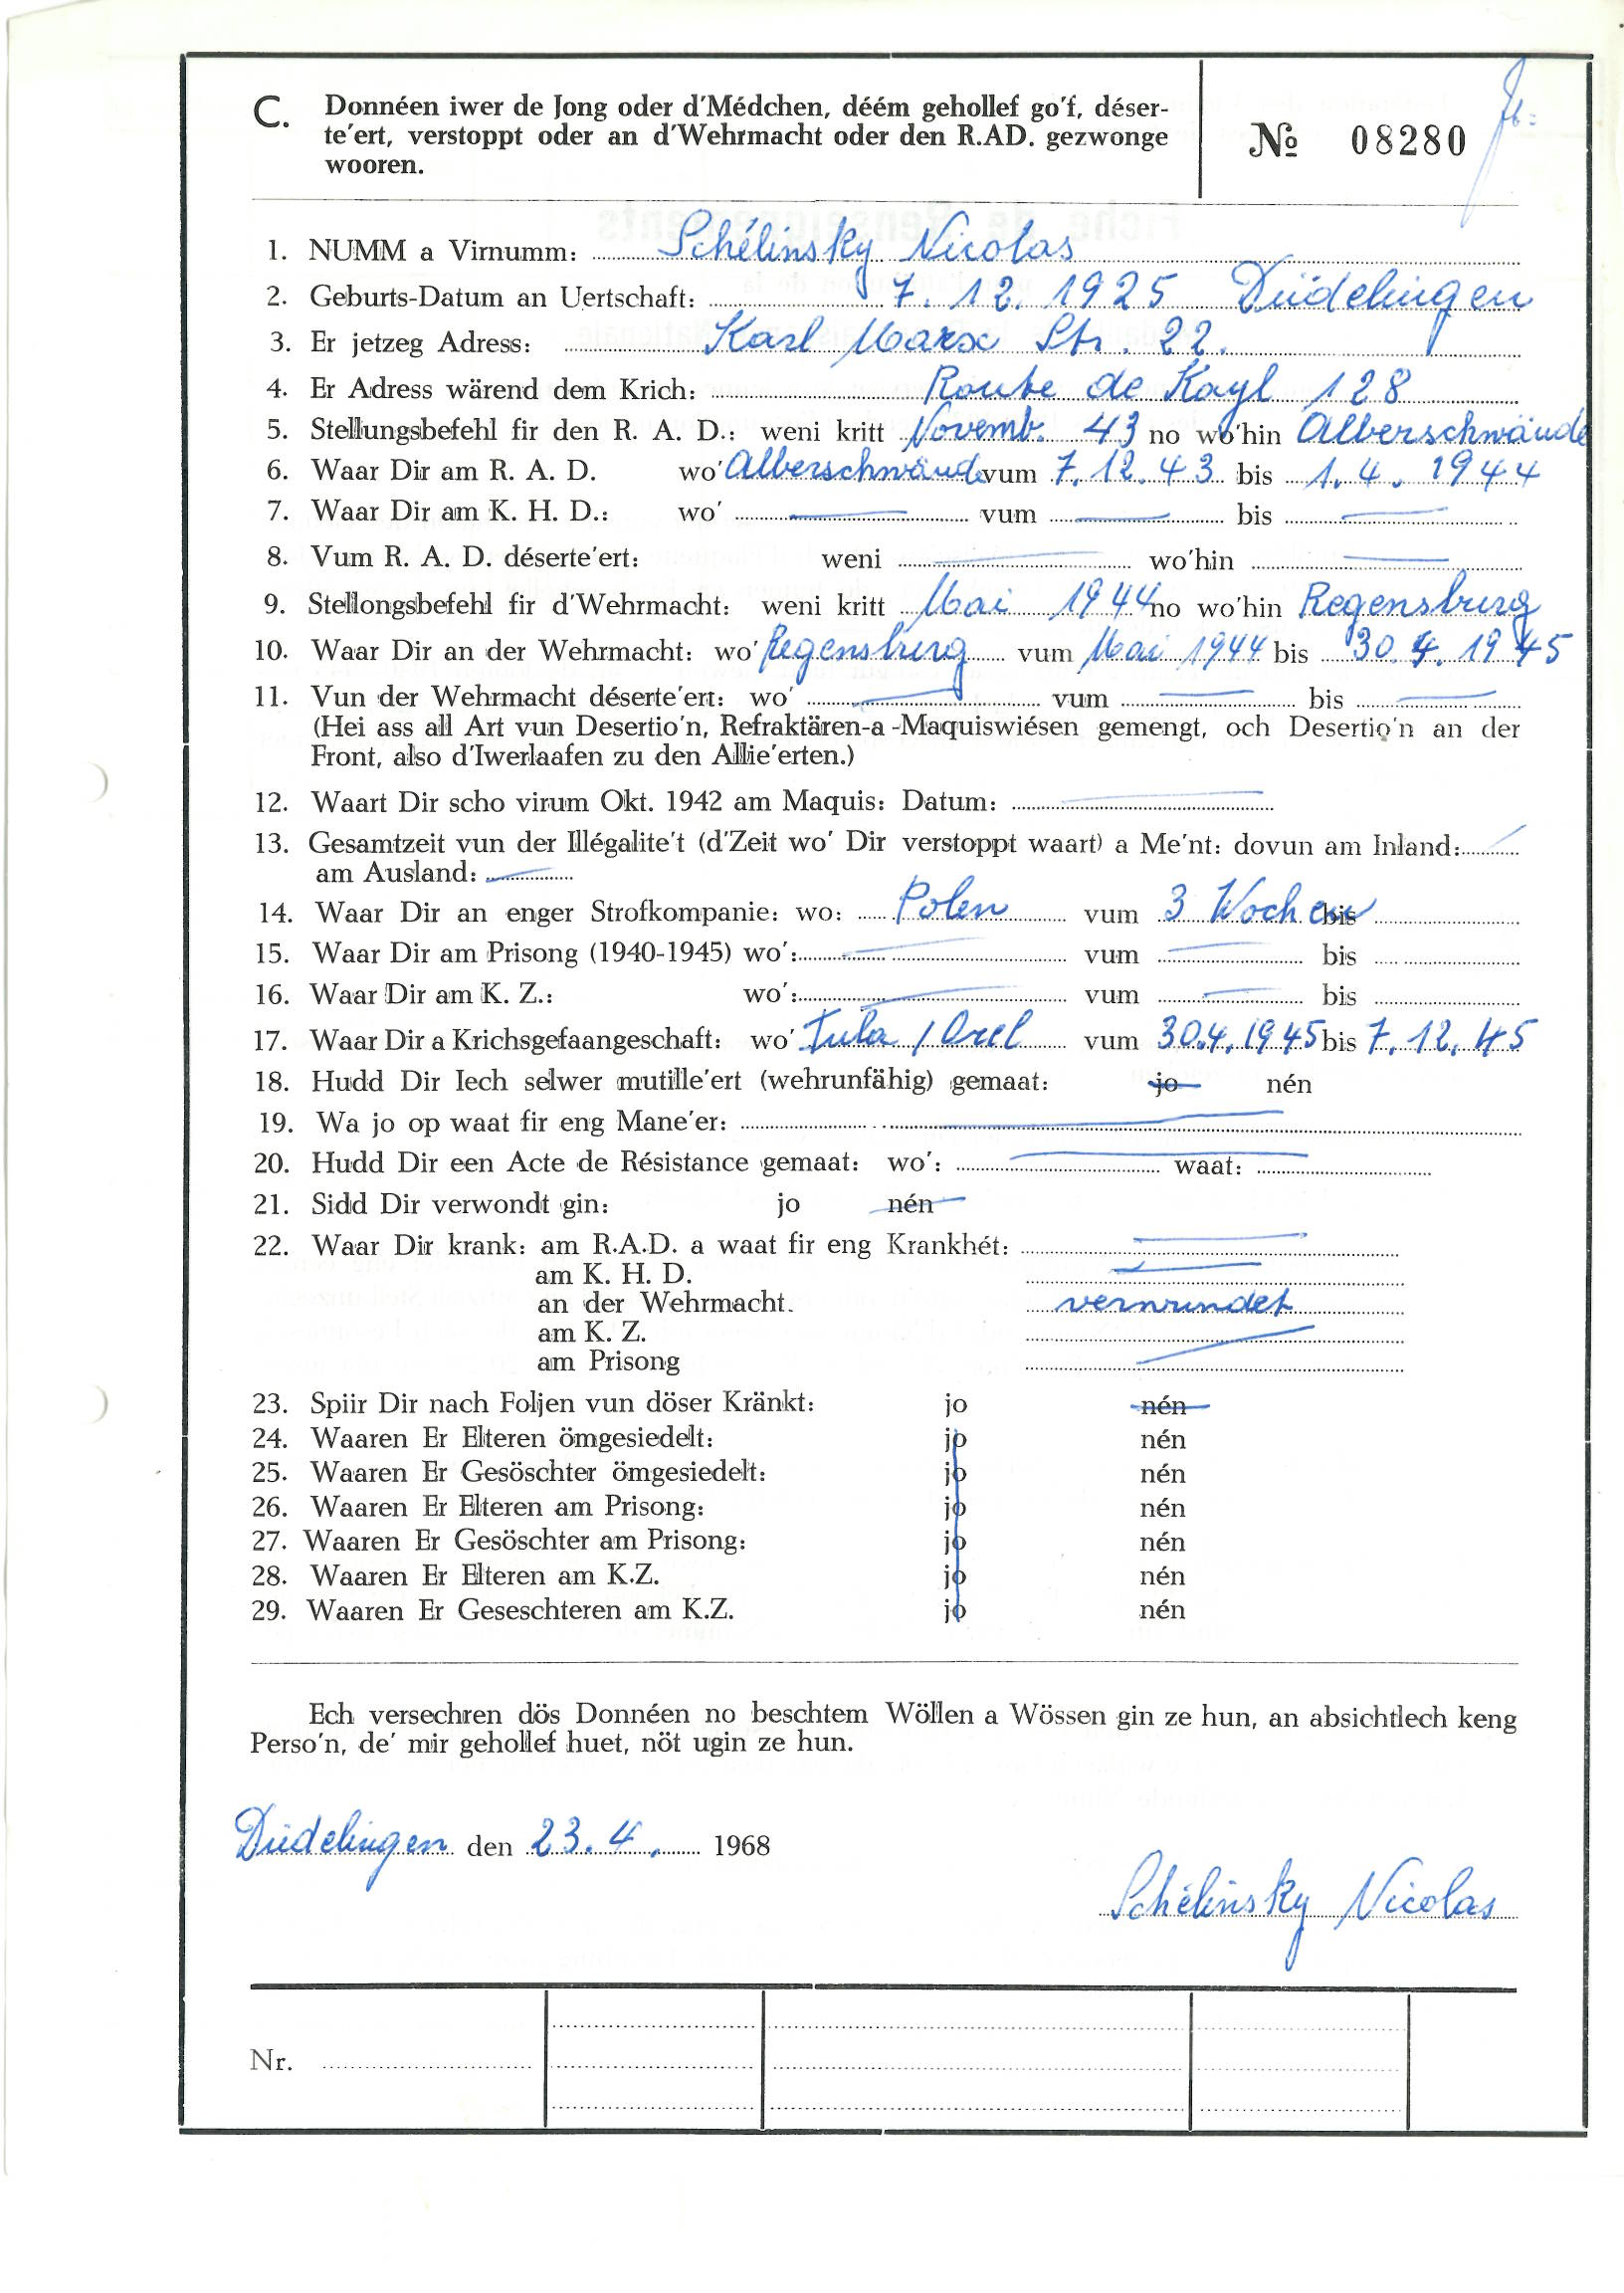 C. Donnéen iwer de Jong oder d'Médchen, déém gehollef go'f, déser-
te'ert, verstoppt oder an d'Wehrmacht oder den R.AD. gezwonge
wooren.
№ 08280
1. NUMM a Virnumm: Schélinsky Nicolas
2. Geburts-Datum an Uertschaft: 7. 12. 1925 Düdelingen
3. Er jetzeg Adress: Karl Marx Str. 22.
4. Er Adress wärend dem Krich: Route de Kayl 128
5. Stellungsbefehl fir den R. A. D.: weni kritt Novemb. 43 no wo'hin Alberschwände
6. Waar Dir am R. A. D. wo' Alberschwände vum 7. 12. 43 bis 1. 4. 1944
7. Waar Dir am K. H. D.: wo' — vum — bis —
8. Vum R. A. D. déserte'ert: weni — wo'hin —
9. Stellongsbefehl fir d'Wehrmacht: weni kritt Mai 1944 no wo'hin Regensburg
10. Waar Dir an der Wehrmacht: wo' Regensburg vum Mai 1944 bis 30. 4. 1945
11. Vun der Wehrmacht déserte'ert: wo' — vum — bis —
(Hei ass all Art vun Desertio'n, Refraktären-a -Maquiswiésen gemengt, och Desertio'n an der
Front, also d'Iwerlaafen zu den Allie'erten.)
12. Waart Dir scho virum Okt. 1942 am Maquis: Datum: —
13. Gesamtzeit vun der Illégalite't (d'Zeit wo' Dir verstoppt waart) a Me'nt: dovun am Inland: —
am Ausland: —
14. Waar Dir an enger Strofkompanie: wo: Polen vum 3 Wochen bis
15. Waar Dir am Prisong (1940-1945) wo': — vum — bis
16. Waar Dir am K. Z.: wo': — vum — bis
17. Waar Dir a Krichsgefaangeschaft: wo' Tula / Orel vum 30.4.1945 bis 7. 12. 45
18. Hudd Dir Iech selwer mutille'ert (wehrunfähig) gemaat: jo nén
19. Wa jo op waat fir eng Mane'er: —
20. Hudd Dir een Acte de Résistance gemaat: wo': — waat:
21. Sidd Dir verwondt gin: jo nén
22. Waar Dir krank: am R.A.D. a waat fir eng Krankhét: —
am K. H. D. —
an der Wehrmacht. verwundet
am K. Z. —
am Prisong
23. Spiir Dir nach Foljen vun döser Kränkt: jo nén
24. Waaren Er Elteren ömgesiedelt: jo nén
25. Waaren Er Gesöschter ömgesiedelt: jo nén
26. Waaren Er Elteren am Prisong: jo nén
27. Waaren Er Gesöschter am Prisong: jo nén
28. Waaren Er Elteren am K.Z. jo nén
29. Waaren Er Geseschteren am K.Z. jo nén
Ech versechren dös Donnéen no beschtem Wöllen a Wössen gin ze hun, an absichtlech keng
Perso'n, de' mir gehollef huet, nöt ugin ze hun.
Düdelingen den 23. 4. 1968
Schélinsky Nicolas
Nr.